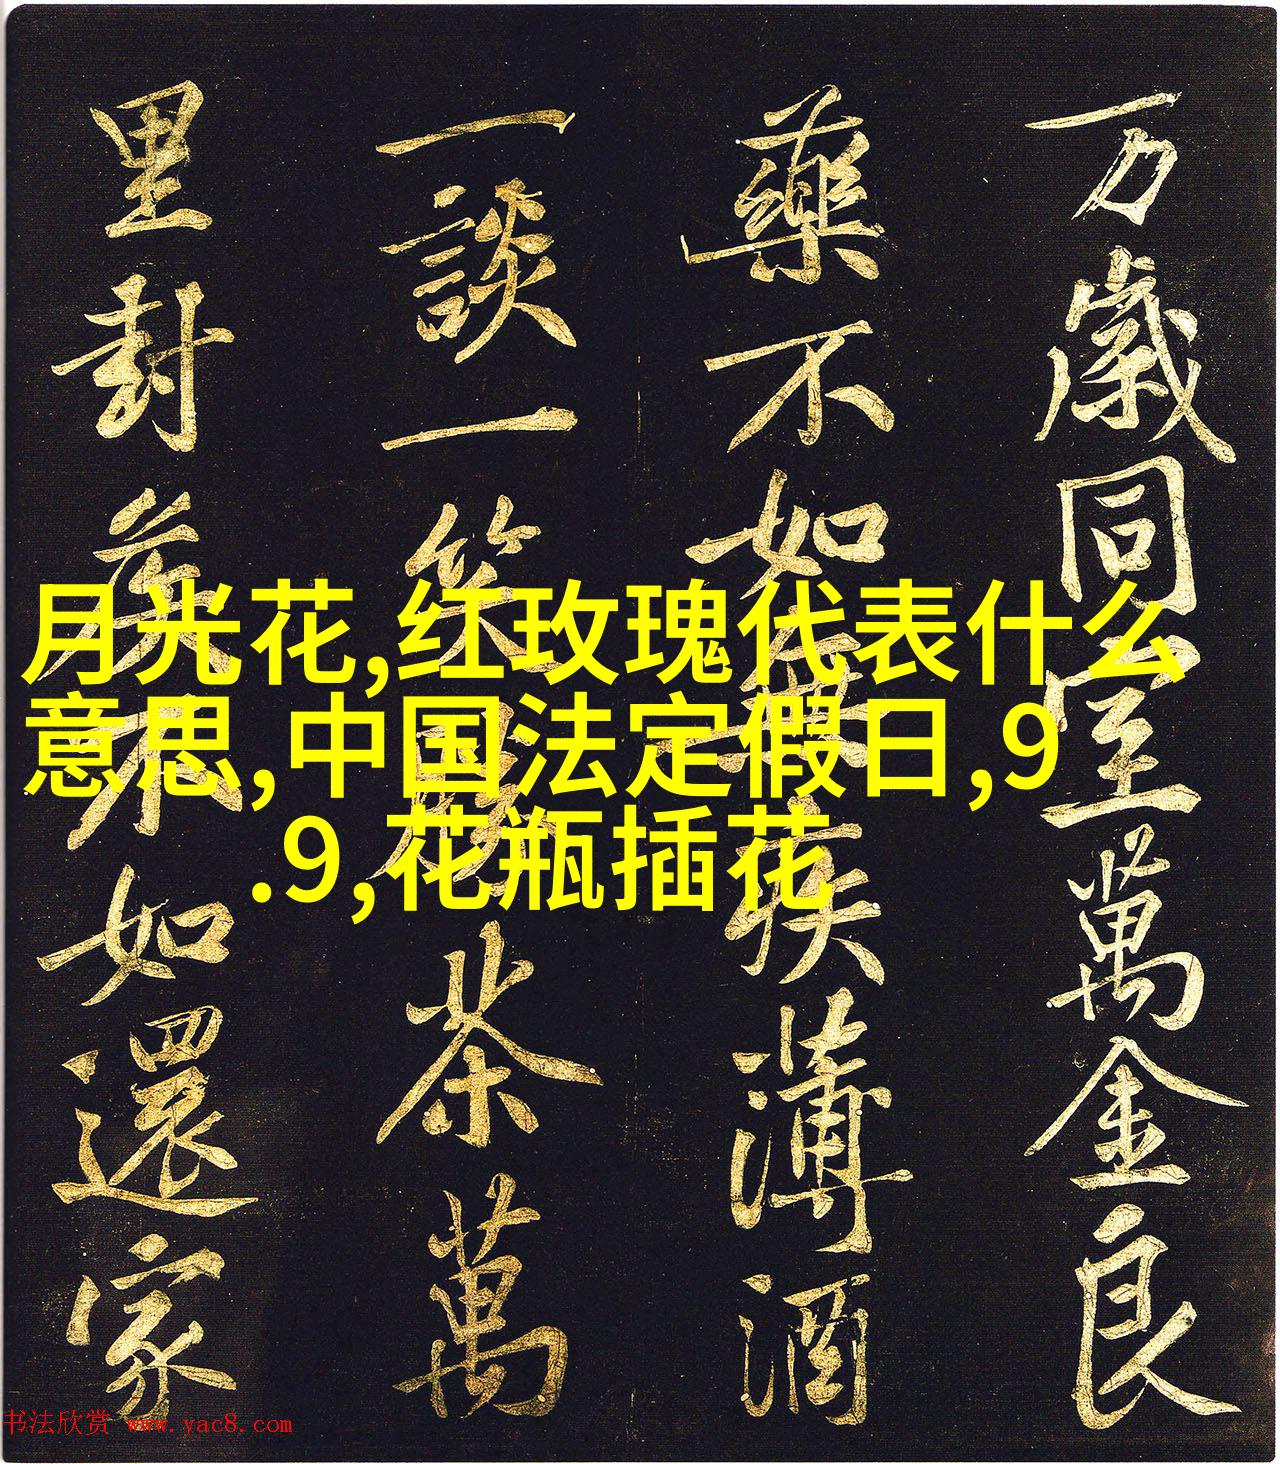 万歲同室萬金良
藥不如疾薄酒
一談一笑茶萬
里封不如還家
月光花,红玫瑰代表什么
意思,中国法定假日,9
.9,花瓶插花
书法欣赏 www.yac8.com